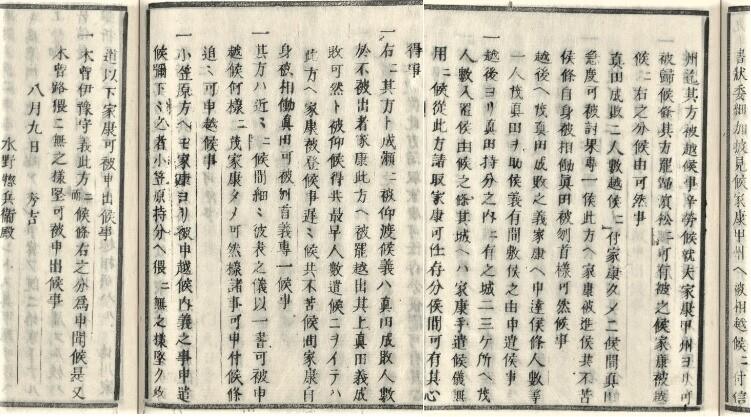 書狀委細加披見候家康甲州ヘ被相越候ニ付信
州筋其方被越候事辛勞候就夫家康甲州ヨリ可
被歸候條其方罷歸濱松ニ可有被之候家康被越
候ニ右之分候由可然事
真田成敗ニ人數越候ニ付家康タメニ候間真田
急度可被討果專一候此方ヘ家康被進候共不苦
候條自身被相働真田被刎首樣可然候事
越後ヘ茂真田成敗之義家康ヘ申達候條人數等
一人茂真田ヲ助候義有間敷候之由申遣候事
一越後ヨリ真田持分之内ニ有之城二三ケ所ヘ茂
人數入置候由候之條其城ヘハ家康手遣候儀無
用ニ候從此方請取家康可任存分候間可有其心
得事
一右ニ其方ト成瀬ニ被仰渡候義ハ真田成敗人數
於不被出者家康此方ヘ被罷越出其上真田義成
敗可然ト被仰候得共最早人數遣候ニヲイテハ
此方ヘ家康被登候事遲ミ候共不苦候間家康自
身被相働真田可被刎首義專一候事
一其方ハ近ミニ候間細ミ彼表之儀以一書可被申
越候何樣ニ茂家康タメ可然樣諸事可申付候條
追ミ可申越候事
一小笠原方ヘモ家康ヨリ被申越候内義之事申遣
候彌下ミ之者小笠原持分ヘ猥ニ無之樣堅ク政
道以下家康可被申出候事
一木曾伊豫守義此方ニ候條右之分為申聞候是又
木曾路猥ニ無之樣堅可被申出候事
八月九日　秀吉
水野惣兵衞殿